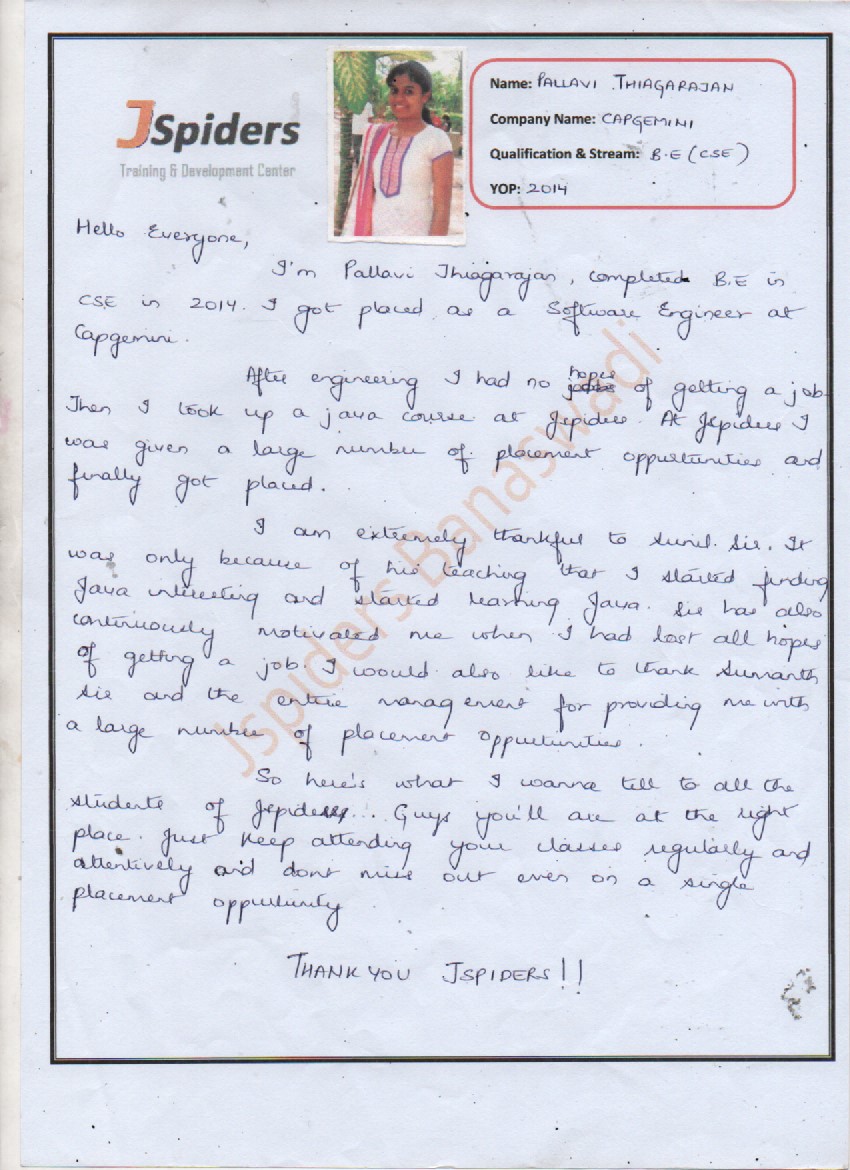 JSpiders
Training & Development Center
Name: PALLAVI THIAGARAJAN
Company Name: CAPGEMINI
Qualification & Stream: B.E (CSE)
YOP: 2014
Hello Everyone,
I'm Pallavi Thiagarajan, completed B.E in
CSE in 2014. I got placed as a Software Engineer at
Capgemini.
After engineering I had no hopes of getting a job.
Then I took up a java course at Jspiders. At Jspiders I
was given a large number of placement oppurtunities and
finally got placed.
I am extremely thankful to Sunil Sir. It
was only because of his teaching that I started finding
Java interesting and started learning Java. Sir has also
continuously motivated me when I had lost all hopes
of getting a job. I would also like to thank Sumanth
Sir and the entire management for providing me with
a large number of placement oppurtunities.
So here's what I wanna tell to all the
students of Jspiders... Guys you'll are at the right
place. Just keep attending your classes regularly and
attentively and dont miss out even on a single
placement oppurtunity
THANK YOU JSPIDERS!!
Jspiders Banaswadi